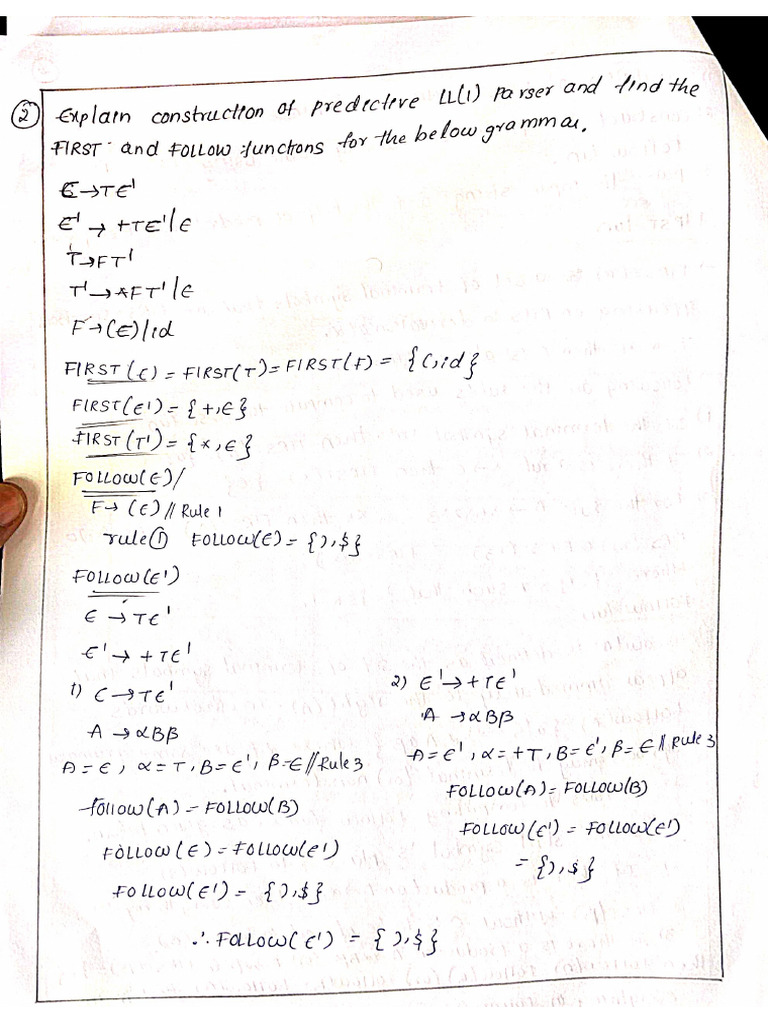 ② Explain construction of predictive LL(1) parser and find the
FIRST and FOLLOW functions for the below grammar.
E→TE'
E' → +TE'/ϵ
T→FT'
T' → *FT'/ϵ
F→(E)/id
FIRST(E) = FIRST(T) = FIRST(F) = {(, id}
FIRST(E') = {+, ϵ}
FIRST(T') = {*, ϵ}
FOLLOW(E)/
F→ (E) // Rule 1
rule ① FOLLOW(E) = {), $}
FOLLOW(E')
E → TE'
E' → +TE'
1) E → TE'
A → αBβ
A = E, α = T, B = E', β = ϵ // Rule 3
follow(A) = FOLLOW(B)
FOLLOW(E) = FOLLOW(E')
FOLLOW(E') = {), $}
2) E' → +TE'
A → αBβ
A = E', α = +T, B = E', β = ϵ // Rule 3
FOLLOW(A) = FOLLOW(B)
FOLLOW(E') = FOLLOW(E')
= {), $}
∴ FOLLOW(E') = {), $}